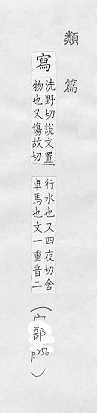 類篇
寫
洗野切說文置
物也又傷故切
行水也又四夜切舍
車馬也文一重音二
(宀部
p.256)